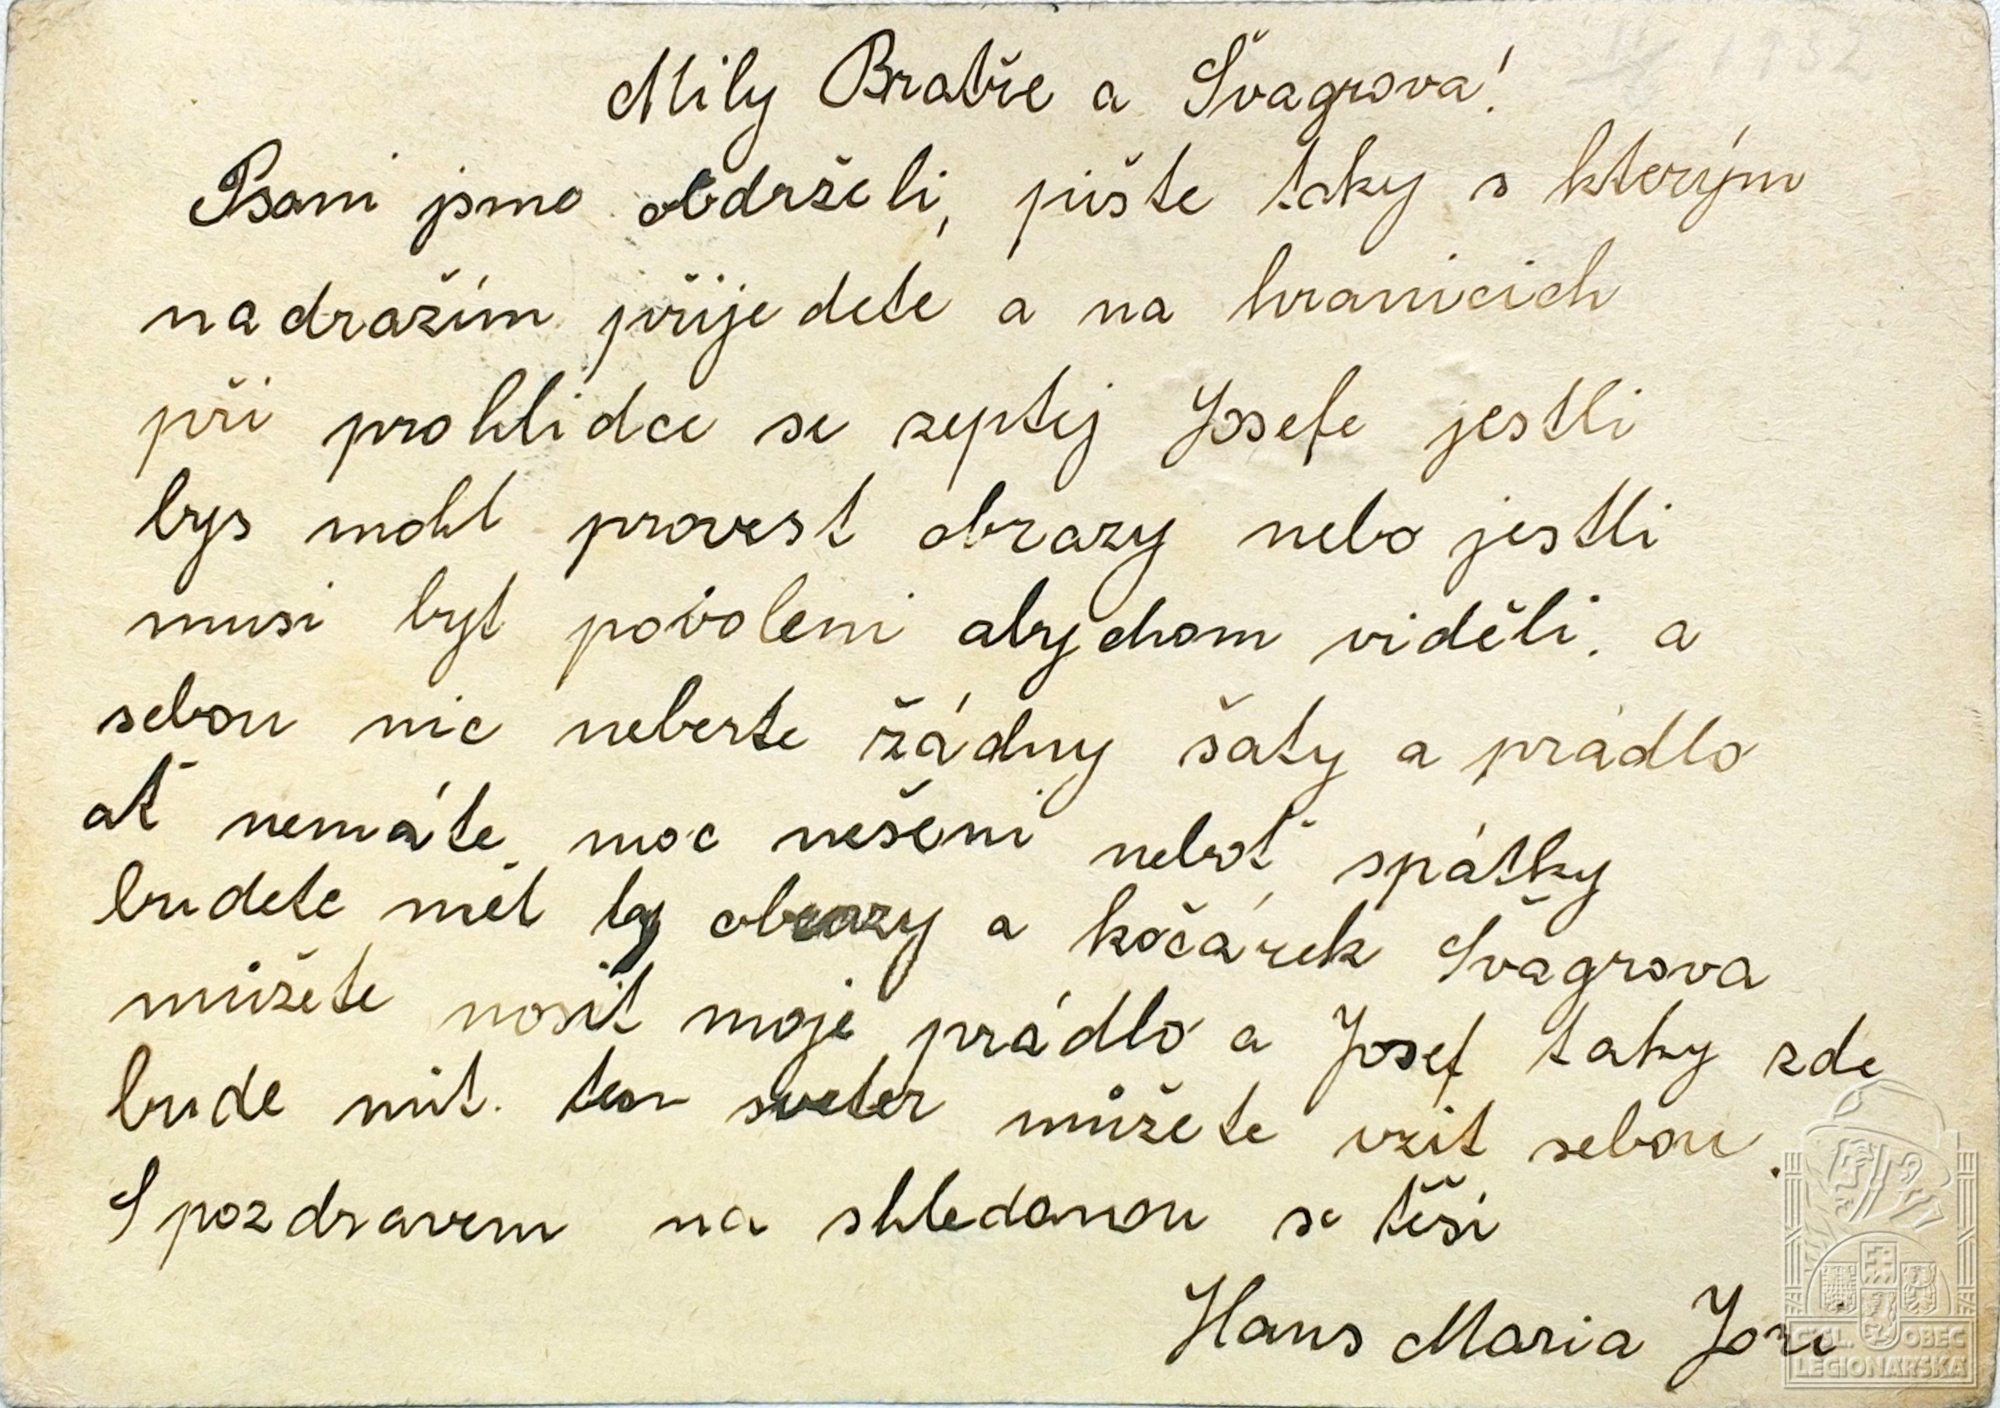 1932
Mily Bratře a Švagrova!
Psani jsme obdrželi, pište taky s kterým
nadražím přijedete a na hranicich
při prohlidce se zeptej Josefe jestli
bys mohl provest obrazy nebo jestli
musi byt povoleni abychom viděli. a
sebou nic neberte žádny šaty a prádlo
ať nemáte moc nešeni neboť spátky
budete mět ty obrazy a kočárek Švagrova
můžete nosit moje prádlo a Josef taky zde
bude mit. ten sveter můžete vzit sebou.
S pozdravem na shledanou se těši
Hans Maria Jozi
ČSL. OBEC
LEGIONÁŘSKÁ